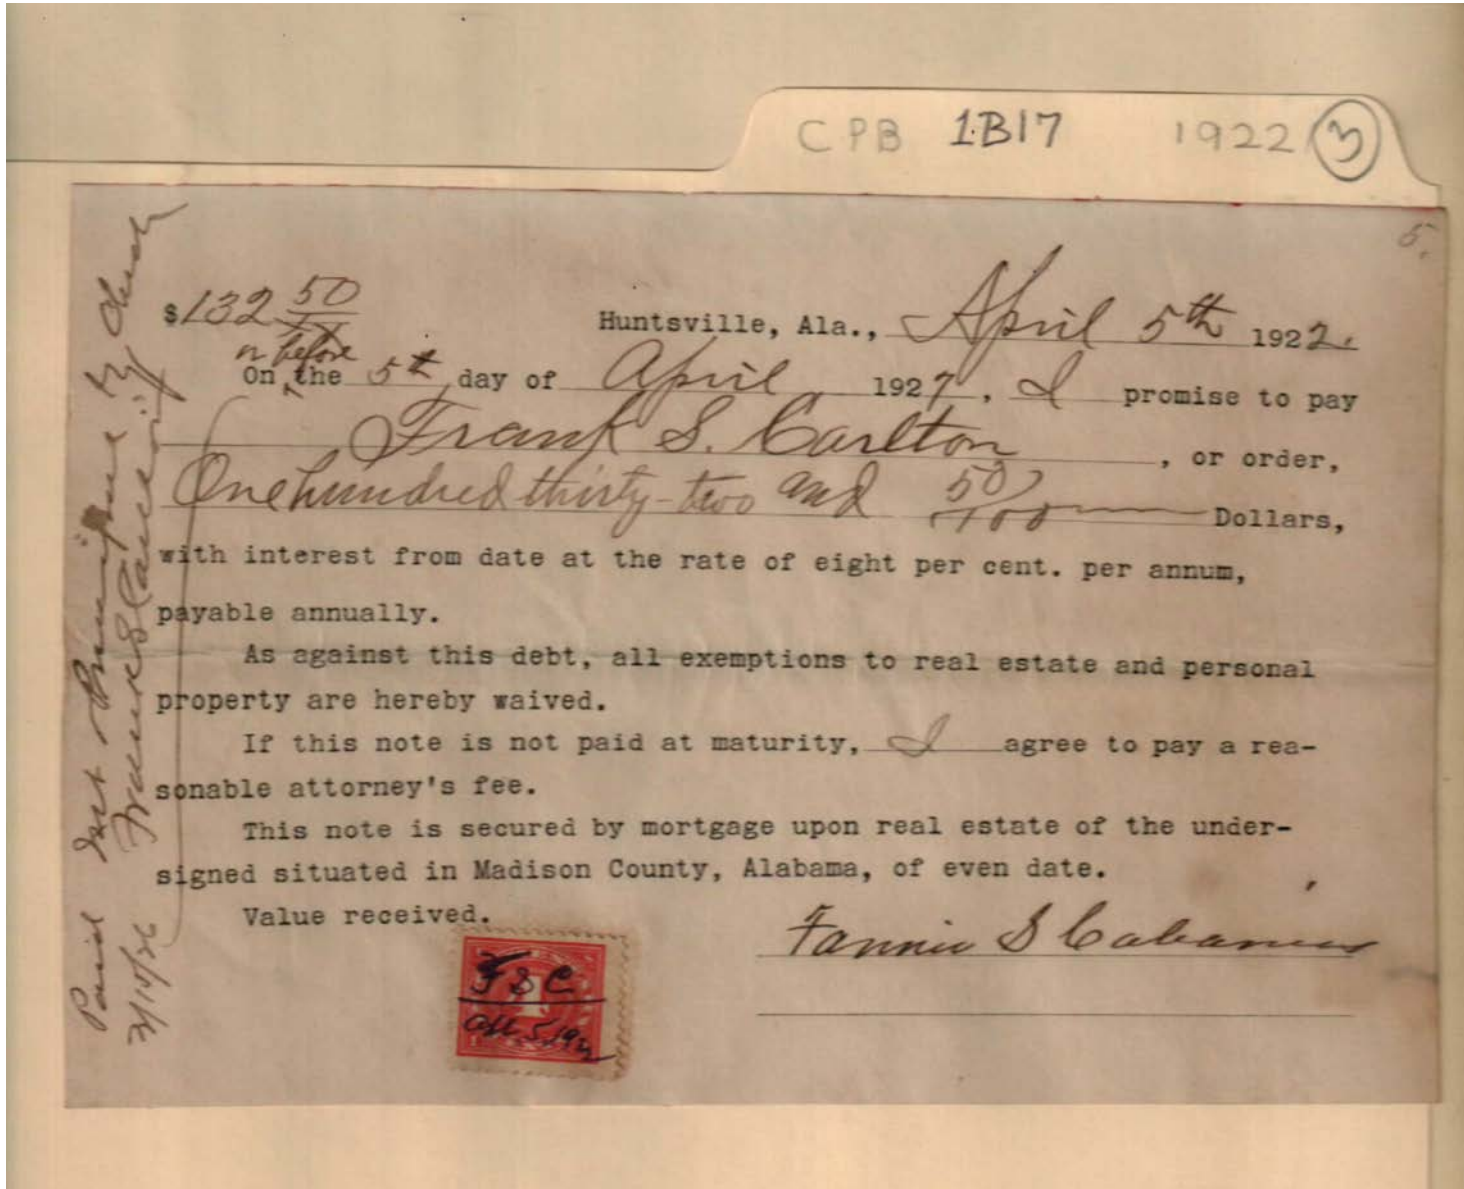 CPB 1B17 1922 3
5.
$132 50/xx Huntsville, Ala., April 5th 1922.
or before
On the 5th day of April 1927, I promise to pay
Frank S. Carlton, or order,
One hundred thirty-two and 50/100 Dollars,
with interest from date at the rate of eight per cent. per annum,
payable annually.
As against this debt, all exemptions to real estate and personal
property are hereby waived.
If this note is not paid at maturity, I agree to pay a rea-
sonable attorney's fee.
This note is secured by mortgage upon real estate of the under-
signed situated in Madison County, Alabama, of even date.
Value received.
Fannie S Cabaniss
FSC
1
Apr 5, 192
Paid Int & Principal by check
3/15/26 Frank S Carlton